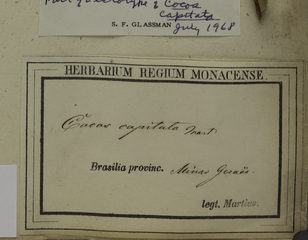 Part of Lectotype & Cocos
capitata
S. F. GLASSMAN July 1968
HERBARIUM REGIUM MONACENSE.
Cocos capitata Mart.
Brasilia provinc. Minas Geraës
legt. Martius.